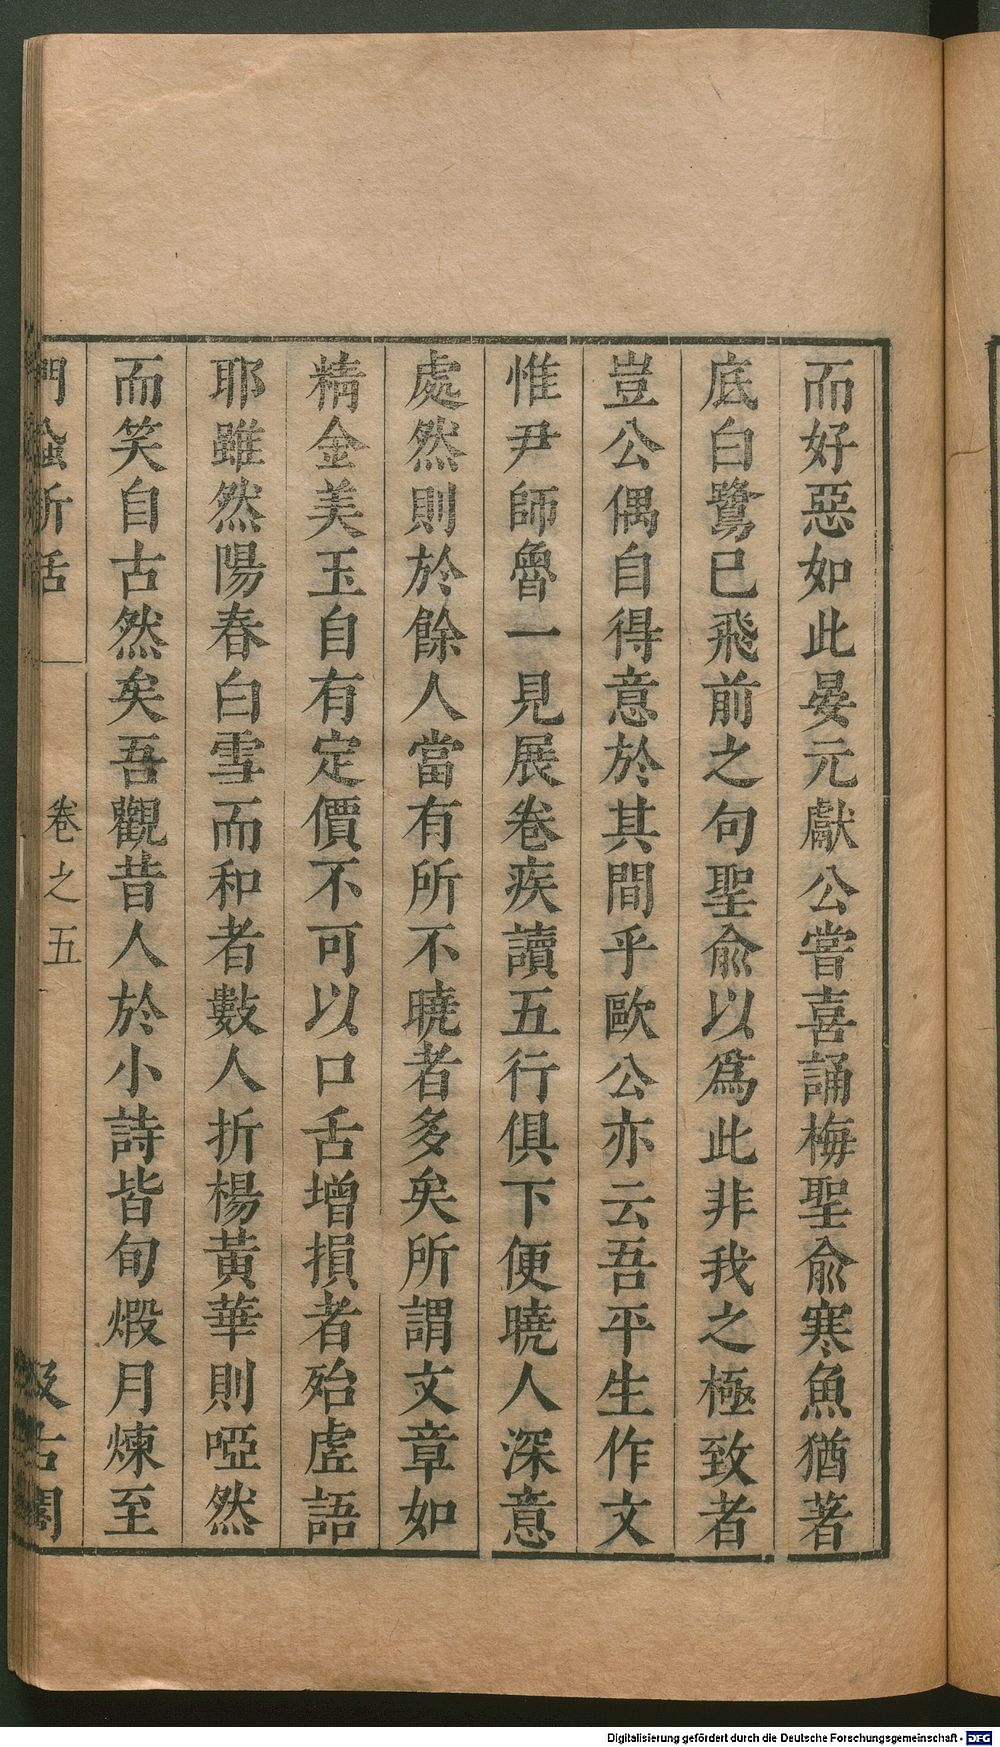 而好惡如此晏元獻公嘗喜誦梅聖兪寒魚猶著
底白鷺已飛前之句聖兪以爲此非我之極致者
豈公偶自得意於其間乎歐公亦云吾平生作文
惟尹師魯一見展卷疾讀五行俱下便曉人深意
處然則於餘人當有所不曉者多矣所謂文章如
精金美玉自有定價不可以口舌增損者殆虛語
耶雖然陽春白雪而和者數人折楊黃華則啞然
而笑自古然矣吾觀昔人於小詩皆旬煅月煉至
門蝨新話 卷之五 汲古閣
Digitalisierung gefördert durch die Deutsche Forschungsgemeinschaft - DFG